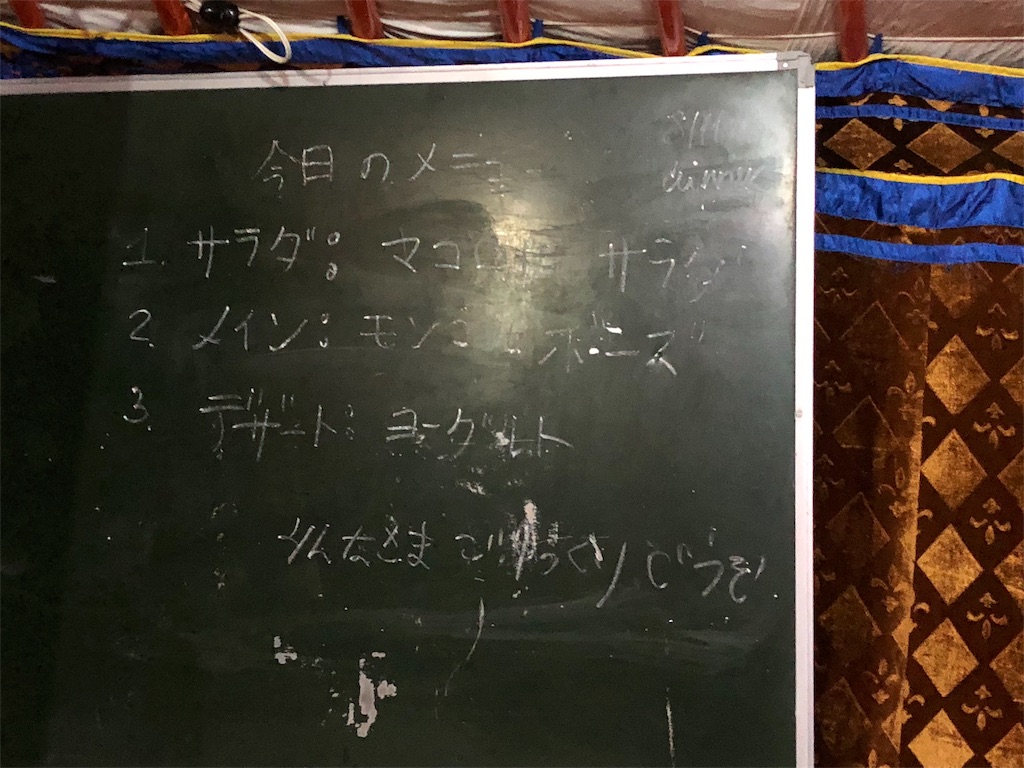 dinner
今日のメニュー
1. サラダ: マコロニ サラダ
2. メイン: モンゴル ボーズ
3. デザート: ヨーグルト
みなさま ごゆっくり どうぞ